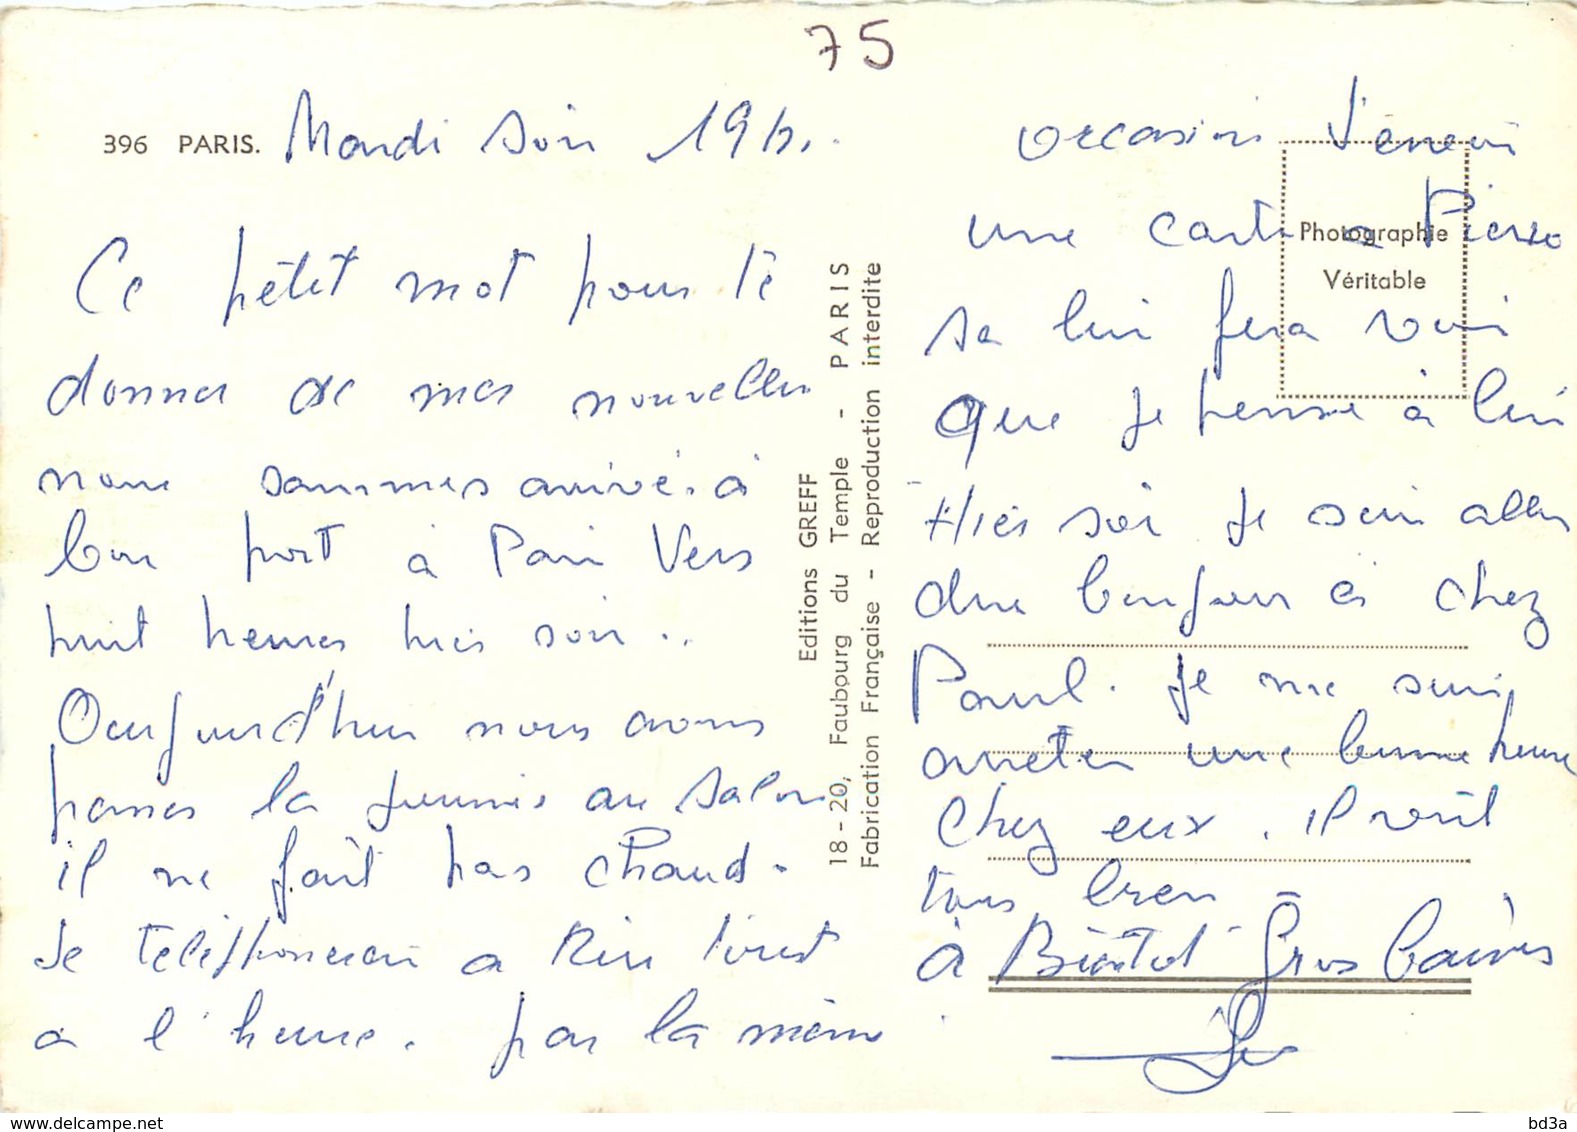 75
396 PARIS. Mardi soir 19h.
Ce petit mot pour te
donner de mes nouvelles
nous sommes arrivé à
bon port à Paris Vers
huit heures hier soir..
Aujourd'hui nous avons
passer la journée au salon
il ne fait pas chaud.
Je telephonerai a tout
a l'heure. par la même
Editions GREFF
18-20, Faubourg du Temple - PARIS
Fabrication Française - Reproduction interdite
occasion J'envoi
une carte a Pierre
Photographie
Véritable
sa lui fera voir
que je pense à lui
Hier soir je suis aller
dire bonjour à chez
Paul. je me suis
arreter une bonne heure
chez eux. il vont
tous bien
à Bientot Gros baisers
www.delcampe.net
bd3a